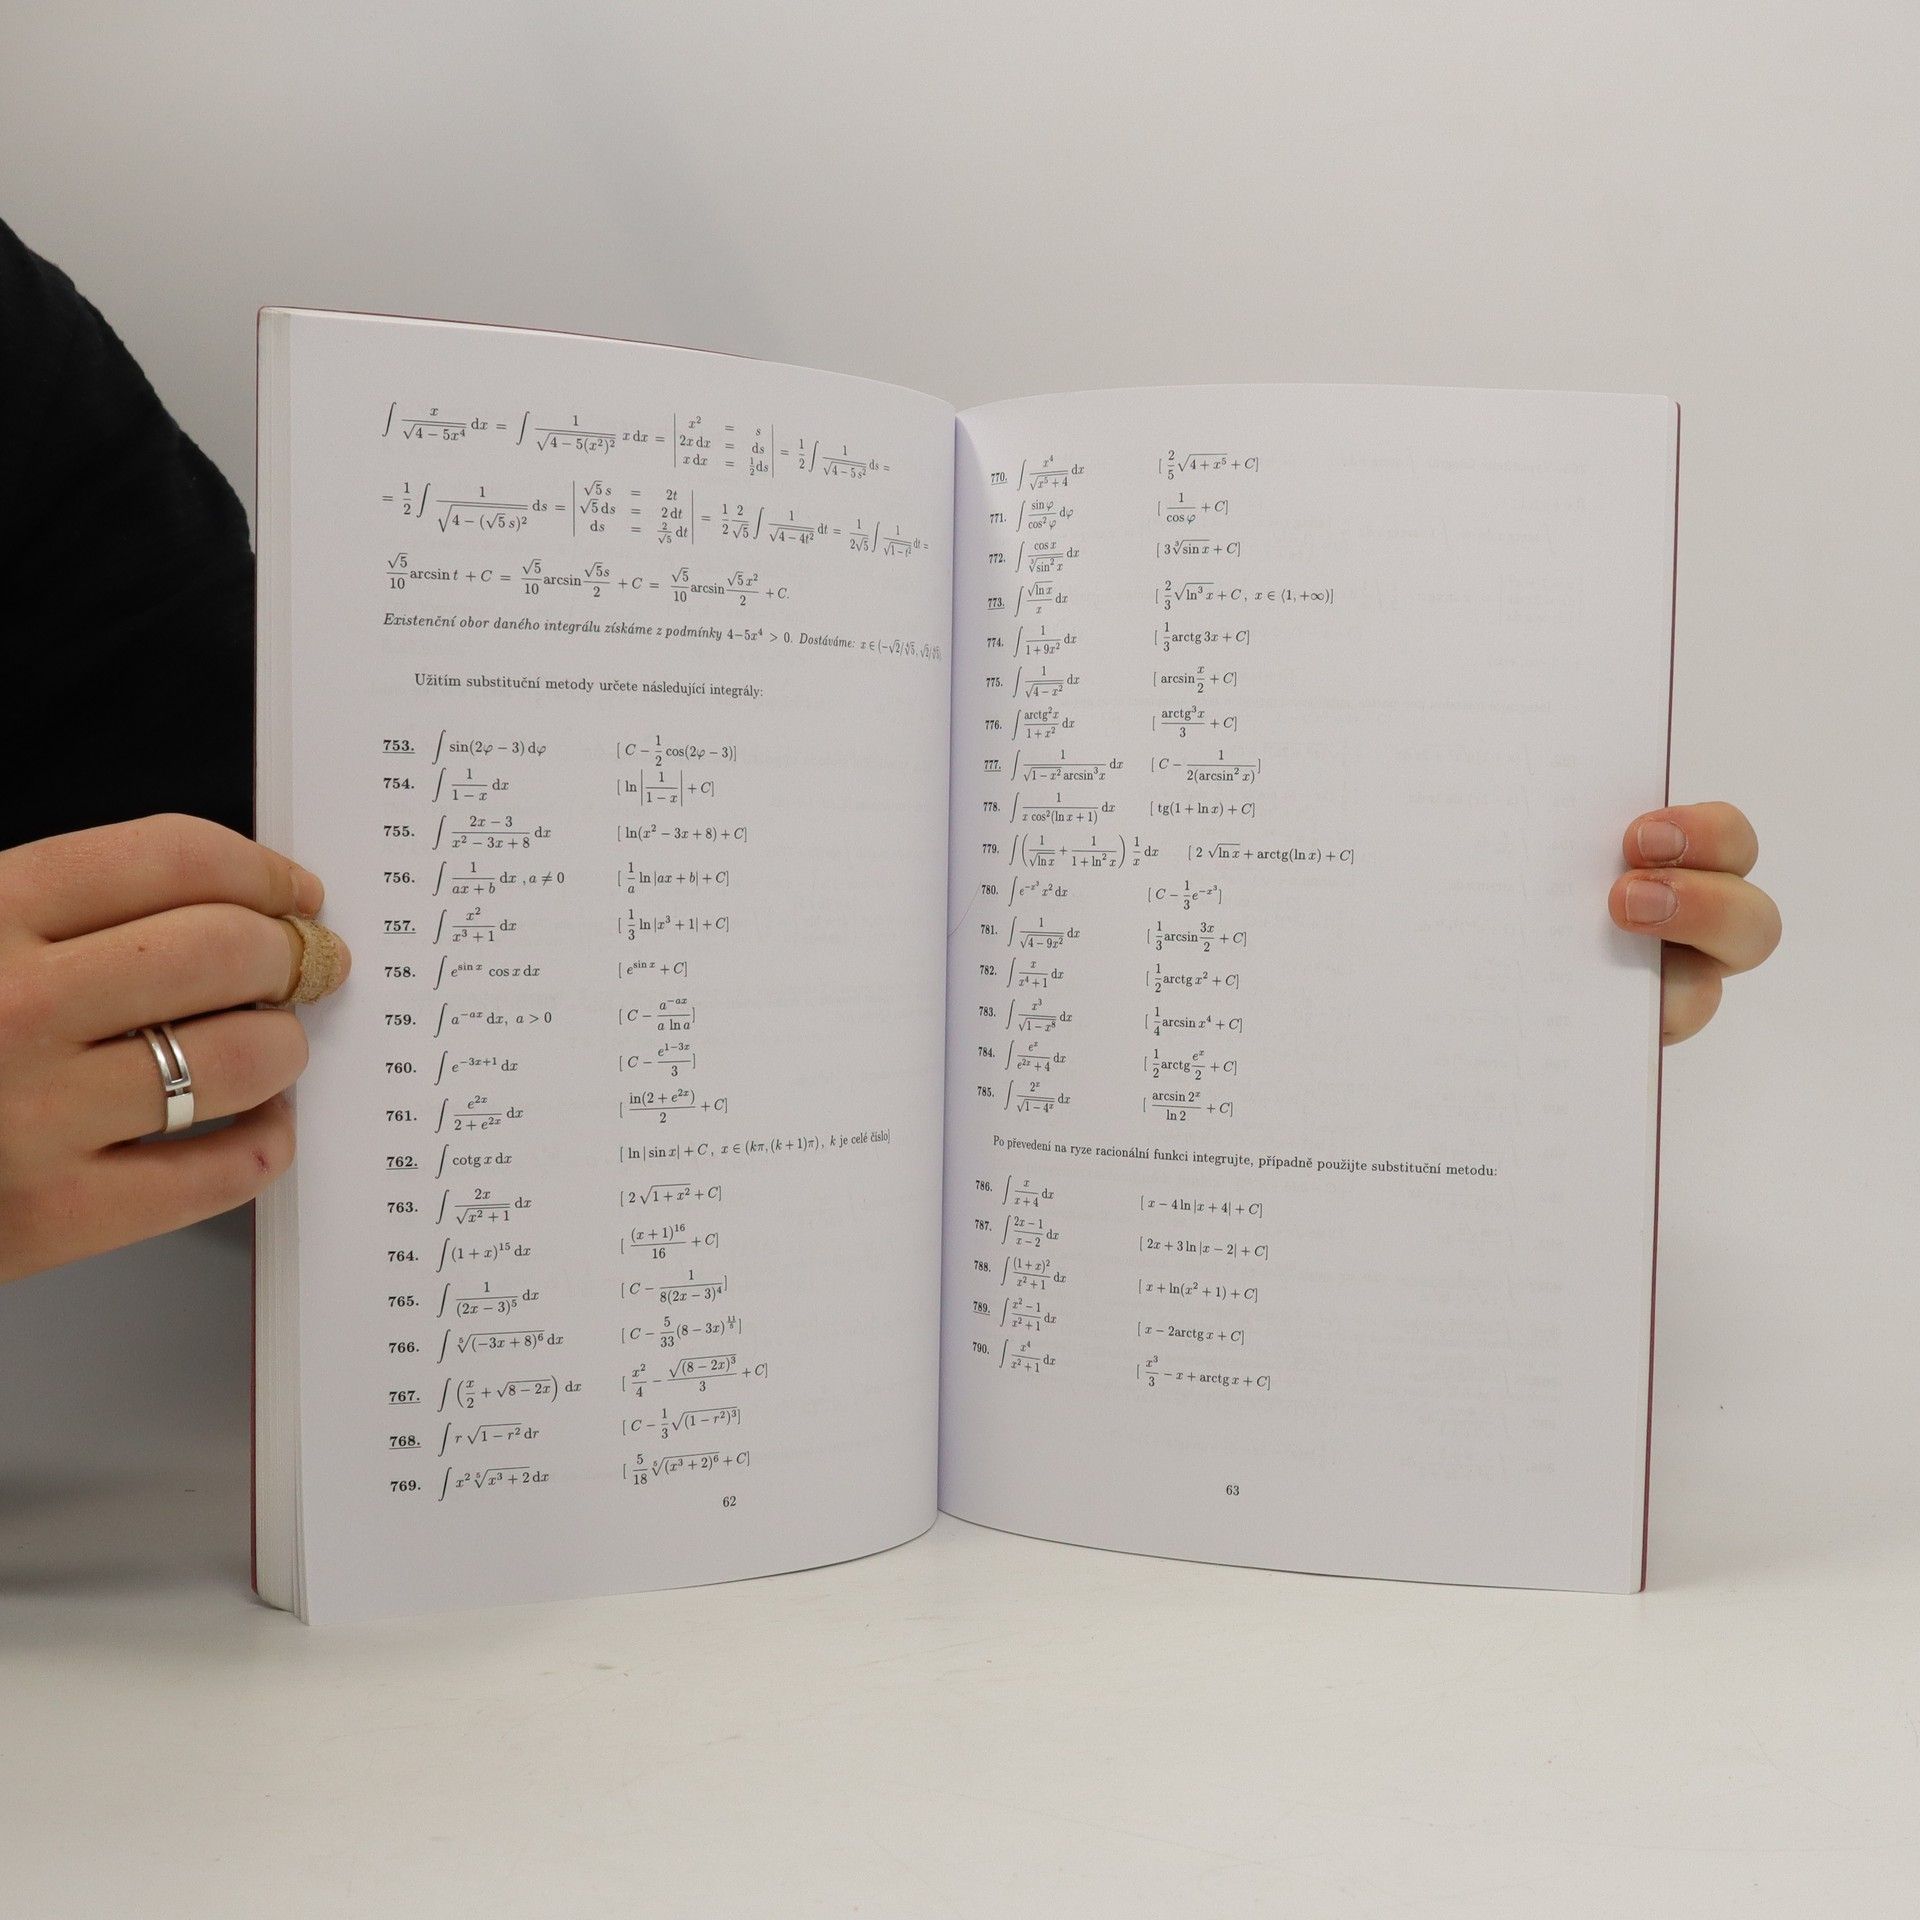 ∫ x/√(4 − 5x⁴) dx = ∫ 1/√(4 − 5(x²)²) x dx = | x² = s ; 2x dx = ds ; x dx = ½ds | = 1/2 ∫ 1/√(4 − 5 s²) ds =
= 1/2 ∫ 1/√(4 − (√5 s)²) ds = | √5 s = 2t ; √5 ds = 2 dt ; ds = 2/√5 dt | = 1/2 2/√5 ∫ 1/√(4 − 4t²) dt = 1/(2√5) ∫ 1/√(1 − t²) dt =
√5/10 arcsin t + C = √5/10 arcsin √5s/2 + C = √5/10 arcsin √5 x²/2 + C.
Existenční obor daného integrálu získáme z podmínky 4−5x⁴ > 0. Dostáváme: x ∈ (−√2/⁴√5, √2/⁴√5).
Užitím substituční metody určete následující integrály:
753. ∫ sin(2φ − 3) dφ [ C − 1/2 cos(2φ − 3)]
754. ∫ 1/(1 − x) dx [ ln |1/(1 − x)| + C]
755. ∫ (2x − 3)/(x² − 3x + 8) dx [ ln(x² − 3x + 8) + C]
756. ∫ 1/(ax + b) dx , a ≠ 0 [ 1/a ln |ax + b| + C]
757. ∫ x²/(x³ + 1) dx [ 1/3 ln |x³ + 1| + C]
758. ∫ e^(sin x) cos x dx [ e^(sin x) + C]
759. ∫ a^(−ax) dx, a > 0 [ C − a^(−ax)/(a ln a)]
760. ∫ e^(−3x+1) dx [ C − e^(1−3x)/3]
761. ∫ e^(2x)/(2 + e^(2x)) dx [ in(2 + e^(2x))/2 + C]
762. ∫ cotg x dx [ ln | sin x| + C , x ∈ (kπ, (k + 1)π) , k je celé číslo]
763. ∫ 2x/√(x² + 1) dx [ 2 √(1 + x²) + C]
764. ∫ (1 + x)¹⁵ dx [ (x + 1)¹⁶/16 + C]
765. ∫ 1/(2x − 3)⁵ dx [ C − 1/(8(2x − 3)⁴)]
766. ∫ ⁵√((−3x + 8)⁶) dx [ C − 5/33 (8 − 3x)^(11/5)]
767. ∫ (x/2 + √(8 − 2x)) dx [ x²/4 − √((8 − 2x)³)/3 + C]
768. ∫ r √(1 − r²) dr [ C − 1/3 √((1 − r²)³)]
769. ∫ x² ⁵√(x³ + 2) dx [ 5/18 ⁵√((x³ + 2)⁶) + C]
62
770. ∫ x⁴/√(x⁵ + 4) dx [ 2/5 √(4 + x⁵) + C]
771. ∫ sin φ/cos² φ dφ [ 1/cos φ + C]
772. ∫ cos x/³√(sin² x) dx [ 3 ³√(sin x) + C]
773. ∫ √(ln x)/x dx [ 2/3 √(ln³ x) + C , x ∈ ⟨1, +∞)]
774. ∫ 1/(1 + 9x²) dx [ 1/3 arctg 3x + C]
775. ∫ 1/√(4 − x²) dx [ arcsin x/2 + C]
776. ∫ arctg²x/(1 + x²) dx [ arctg³x/3 + C]
777. ∫ 1/(√(1 − x²) arcsin³x) dx [ C − 1/(2(arcsin² x)) ]
778. ∫ 1/(x cos²(ln x + 1)) dx [ tg(1 + ln x) + C]
779. ∫ (1/√(ln x) + 1/(1 + ln² x)) 1/x dx [ 2 √(ln x) + arctg(ln x) + C]
780. ∫ e^(−x³) x² dx [ C − 1/3 e^(−x³)]
781. ∫ 1/√(4 − 9x²) dx [ 1/3 arcsin 3x/2 + C]
782. ∫ x/(x⁴ + 1) dx [ 1/2 arctg x² + C]
783. ∫ x³/√(1 − x⁸) dx [ 1/4 arcsin x⁴ + C]
784. ∫ eˣ/(e^(2x) + 4) dx [ 1/2 arctg eˣ/2 + C]
785. ∫ 2ˣ/√(1 − 4ˣ) dx [ arcsin 2ˣ/ln 2 + C]
Po převedení na ryze racionální funkci integrujte, případně použijte substituční metodu:
786. ∫ x/(x + 4) dx [ x − 4 ln |x + 4| + C]
787. ∫ (2x − 1)/(x − 2) dx [ 2x + 3 ln |x − 2| + C]
788. ∫ (1 + x)²/(x² + 1) dx [ x + ln(x² + 1) + C]
789. ∫ (x² − 1)/(x² + 1) dx [ x − 2arctg x + C]
790. ∫ x⁴/(x² + 1) dx [ x³/3 − x + arctg x + C]
63